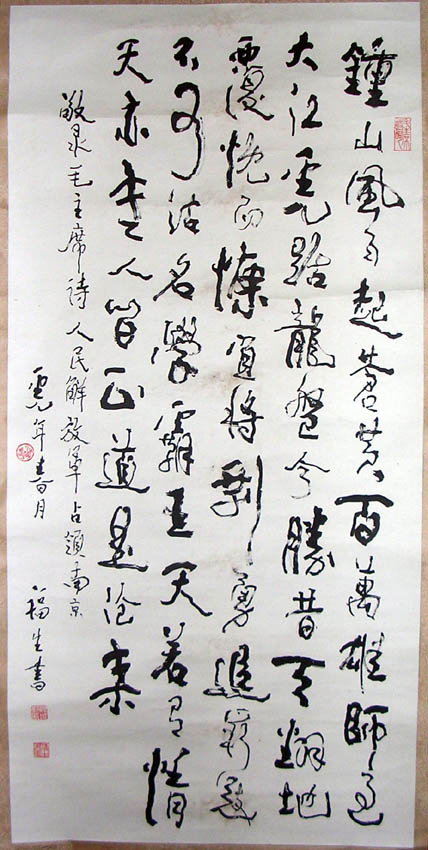 鍾山風雨起蒼黃百萬雄師過
大江虎踞龍盤今勝昔天翻地
覆慨而慷宜將剩勇追窮寇
不可沽名學霸王天若有情
天亦老人間正道是滄桑
敬录毛主席诗人民解放軍占領南京
年春月福生書